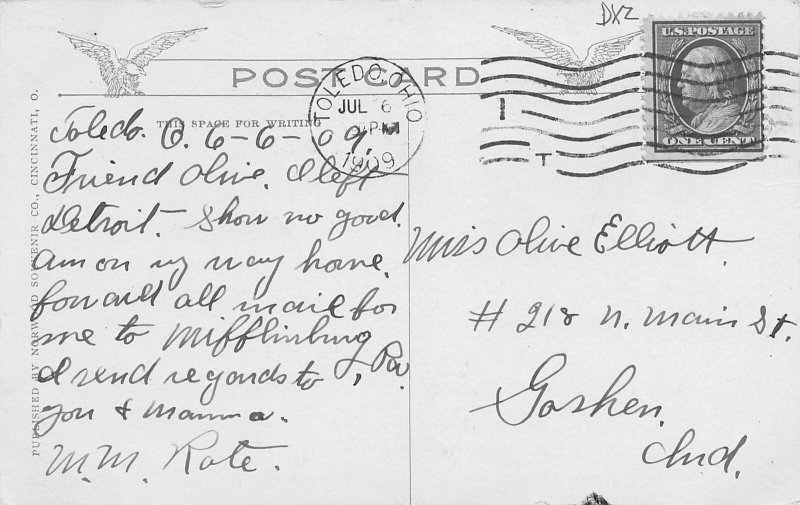 DX2
U.S. POSTAGE
ONE CENT
POST CARD
TOLEDO, OHIO
JUL 6
PM
1909
I
T
THIS SPACE FOR WRITING
PUBLISHED BY NORWOOD SOUVENIR CO., CINCINNATI, O.
Toledo. O. 6-6-09,
Friend Olive. I left
Detroit. Show no good.
Am on my way home.
forward all mail for
me to Mifflinburg
, Pa.
I send regards to
you & Mamma.
M.M. Rote.
Miss Olive Elliott.
# 218 N. Main St.
Goshen,
Ind.